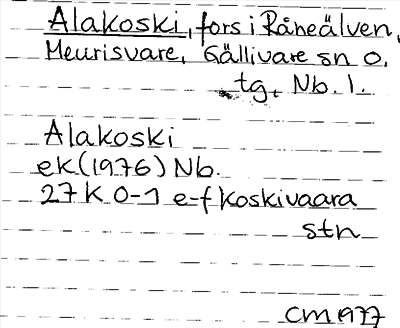 Alakoski, fors i Råneälven,
Meurisvare, Gällivare sn o.
tg, Nb. l.
Alakoski
ek(1976) Nb.
27 K 0-1 e-f Koskivaara
stn
CM 1977